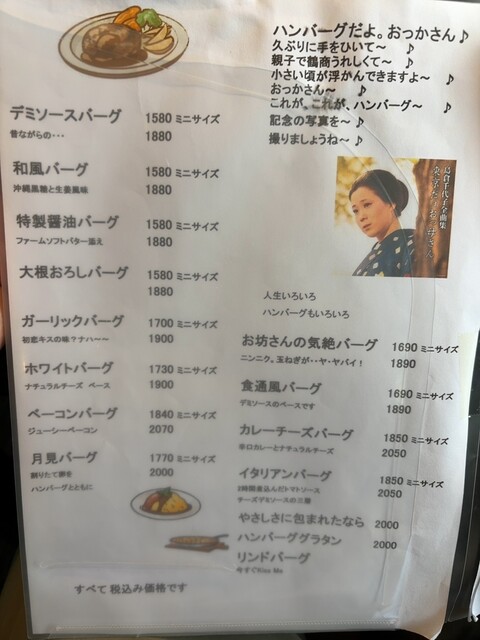 ハンバーグだよ。おっかさん♪
久ぶりに手をひいて〜 ♪
親子で鶴商うれしくて〜 ♪
小さい頃が浮かんできますよ〜 ♪
おっかさん〜 ♪
これが、これが、ハンバーグ〜 ♪
記念の写真を〜 ♪
撮りましょうね〜 ♪
島倉千代子全曲集
デミソースバーグ 1580 ミニサイズ
昔ながらの・・・ 1880
和風バーグ 1580 ミニサイズ
沖縄黒糖と生姜風味 1880
特製醤油バーグ 1580 ミニサイズ
ファームソフトバター添え 1880
大根おろしバーグ 1580 ミニサイズ
1880
ガーリックバーグ 1700 ミニサイズ
初恋キスの味?ナハ〜〜 1900
ホワイトバーグ 1730 ミニサイズ
ナチュラルチーズ ベース 1900
ベーコンバーグ 1840 ミニサイズ
ジューシーベーコン 2070
月見バーグ 1770 ミニサイズ
割りたて卵を 2000
ハンバーグとともに
すべて税込み価格です
人生いろいろ
ハンバーグもいろいろ
お坊さんの気絶バーグ 1690 ミニサイズ
ニンニク。玉ねぎが・・ヤ・ヤバイ! 1890
食通風バーグ 1690 ミニサイズ
デミソースのベースです 1890
カレーチーズバーグ 1850 ミニサイズ
辛口カレーとナチュラルチーズ 2050
イタリアンバーグ 1850 ミニサイズ
2時間煮込んだトマトソース 2050
チーズデミソースの三層
やさしさに包まれたなら 2000
ハンバーググラタン 2000
リンドバーグ
今すぐKiss Me